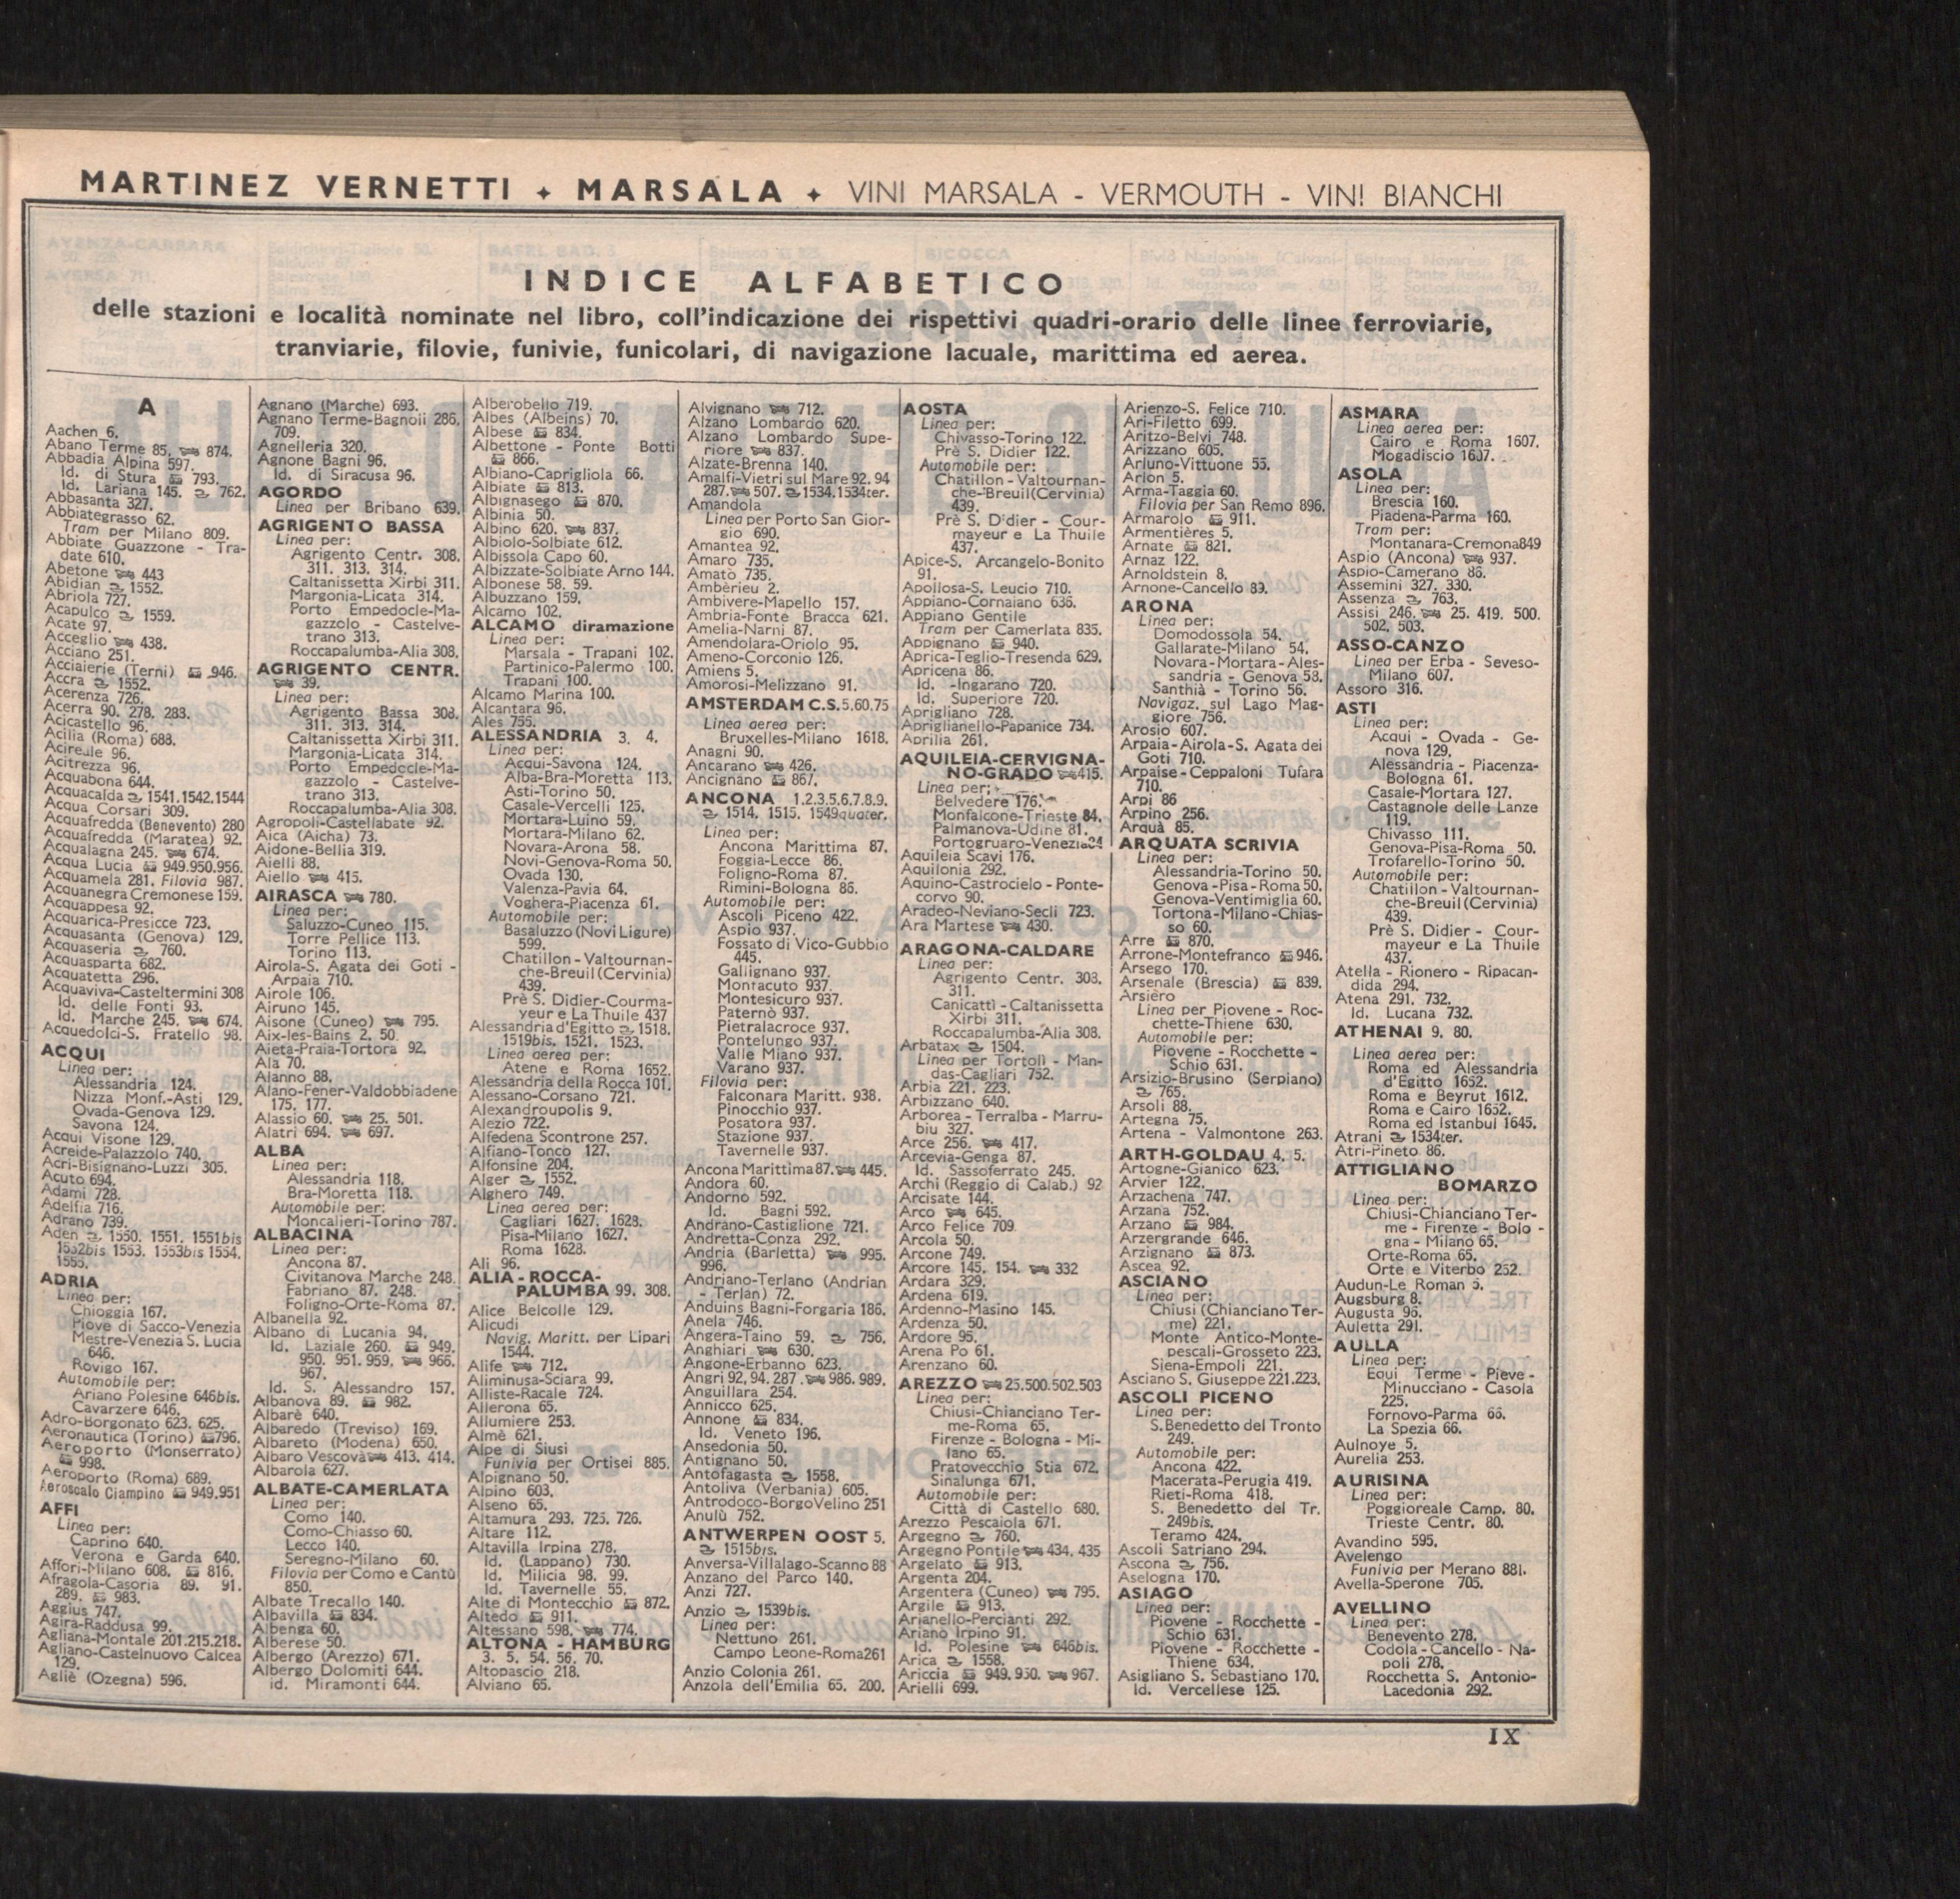 MARTINEZ VERNETTI ✦ MARSALA ✦ VINI MARSALA - VERMOUTH - VIN! BIANCHI
INDICE ALFABETICO
delle stazioni e località nominate nel libro, coll'indicazione dei rispettivi quadri-orario delle linee ferroviarie,
tranviarie, filovie, funivie, funicolari, di navigazione lacuale, marittima ed aerea.
A
Aachen 6.
Abano Terme 85. 874.
Abbadia Alpina 597.
Id. di Stura 793.
Id. Lariana 145. 762.
Abbasanta 327.
Abbiategrasso 62.
Tram per Milano 809.
Abbiate Guazzone - Tra-
date 610.
Abetone 443
Abidian 1552.
Abriola 727.
Acapulco 1559.
Acate 97.
Acceglio 438.
Acciano 251.
Acciaierie (Terni) 946.
Accra 1552.
Acerenza 726.
Acerra 90. 278. 283.
Acicastello 96.
Acilia (Roma) 688.
Acireale 96.
Acitrezza 96.
Acquabona 644.
Acquacalda 1541.1542.1544
Acqua Corsari 309.
Acquafredda (Benevento) 280
Acquafredda (Maratea) 92.
Acqualagna 245. 674.
Acqua Lucia 949.950.956.
Acquamela 281. Filovia 987.
Acquanegra Cremonese 159.
Acquappesa 92.
Acquarica-Presicce 723.
Acquasanta (Genova) 129.
Acquaseria 760.
Acquasparta 682.
Acquatetta 296.
Acquaviva-Casteltermini 308
Id. delle Fonti 93.
Id. Marche 245. 674.
Acquedolci-S. Fratello 98.
ACQUI
Linea per:
Alessandria 124.
Nizza Monf.-Asti 129.
Ovada-Genova 129.
Savona 124.
Acqui Visone 129.
Acreide-Palazzolo 740.
Acri-Bisignano-Luzzi 305.
Acuto 694.
Adami 728.
Adelfia 716.
Adrano 739.
Aden 1550. 1551. 1551bis
1552bis 1553. 1553bis 1554.
1555.
ADRIA
Linea per:
Chioggia 167.
Piove di Sacco-Venezia
Mestre-Venezia S. Lucia
646.
Rovigo 167.
Automobile per:
Ariano Polesine 646bis.
Cavarzere 646.
Adro-Borgonato 623. 625.
Aeronautica (Torino) 796.
Aeroporto (Monserrato)
998.
Aeroporto (Roma) 689.
Aeroscalo Ciampino 949.951
AFFI
Linea per:
Caprino 640.
Verona e Garda 640.
Affori-Milano 608. 816.
Afragola-Casoria 89. 91.
289. 983.
Aggius 747.
Agira-Raddusa 99.
Agliana-Montale 201.215.218.
Agliano-Castelnuovo Calcea
129.
Agliè (Ozegna) 596.
Agnano (Marche) 693.
Agnano Terme-Bagnoii 286.
709.
Agnelleria 320.
Agnone Bagni 96.
Id. di Siracusa 96.
AGORDO
Linea per Bribano 639.
AGRIGENTO BASSA
Linea per:
Agrigento Centr. 308.
311. 313. 314.
Caltanissetta Xirbi 311.
Margonia-Licata 314.
Porto Empedocle-Ma-
gazzolo - Castelve-
trano 313.
Roccapalumba-Alia 308.
AGRIGENTO CENTR.
39.
Linea per:
Agrigento Bassa 308.
311. 313. 314.
Caltanissetta Xirbi 311.
Margonia-Licata 314.
Porto Empedocle-Ma-
gazzolo - Castelve-
trano 313.
Roccapalumba-Alia 308.
Agropoli-Castellabate 92.
Aica (Aicha) 73.
Aidone-Bellia 319.
Aielli 88.
Aiello 415.
AIRASCA 780.
Linea per:
Saluzzo-Cuneo 115.
Torre Pellice 113.
Torino 113.
Airola-S. Agata dei Goti -
Arpaia 710.
Airole 106.
Airuno 145.
Aisone (Cuneo) 795.
Aix-les-Bains 2. 50.
Aieta-Praia-Tortora 92.
Ala 70.
Alanno 88.
Alano-Fener-Valdobbiadene
175. 177.
Alassio 60. 25. 501.
Alatri 694. 697.
ALBA
Linea per:
Alessandria 118.
Bra-Moretta 118.
Automobile per:
Moncalieri-Torino 787.
ALBACINA
Linea per:
Ancona 87.
Civitanova Marche 248.
Fabriano 87. 248.
Foligno-Orte-Roma 87.
Albanella 92.
Albano di Lucania 94.
Id. Laziale 260. 949.
950. 951. 959. 966.
967.
Id. S. Alessandro 157.
Albanova 89. 982.
Albarè 640.
Albaredo (Treviso) 169.
Albareto (Modena) 650.
Albaro Vescovà 413. 414.
Albarola 627.
ALBATE-CAMERLATA
Linea per:
Como 140.
Como-Chiasso 60.
Lecco 140.
Seregno-Milano 60.
Filovia per Como e Cantù
850.
Albate Trecallo 140.
Albavilla 834.
Albenga 60.
Alberese 50.
Albergo (Arezzo) 671.
Albergo Dolomiti 644.
id. Miramonti 644.
Alberobello 719.
Albes (Albeins) 70.
Albese 834.
Albettone - Ponte Botti
866.
Albiano-Caprigliola 66.
Albiate 813.
Albignasego 870.
Albinia 50.
Albino 620. 837.
Albiolo-Solbiate 612.
Albissola Capo 60.
Albizzate-Solbiate Arno 144.
Albonese 58. 59.
Albuzzano 159.
Alcamo 102.
ALCAMO diramazione
Linea per:
Marsala - Trapani 102.
Partinico-Palermo 100.
Trapani 100.
Alcamo Marina 100.
Alcantara 96.
Ales 755.
ALESSANDRIA 3. 4.
Linea per:
Acqui-Savona 124.
Alba-Bra-Moretta 113.
Asti-Torino 50.
Casale-Vercelli 125.
Mortara-Luino 59.
Mortara-Milano 62.
Novara-Arona 58.
Novi-Genova-Roma 50.
Ovada 130.
Valenza-Pavia 64.
Voghera-Piacenza 61.
Automobile per:
Basaluzzo (Novi Ligure)
599.
Chatillon - Valtournan-
che-Breuil(Cervinia)
439.
Prè S. Didier-Courma-
yeur e La Thuile 437
Alessandria d'Egitto 1518.
1519bis. 1521. 1523.
Linea aerea per:
Atene e Roma 1652.
Alessandria della Rocca 101.
Alessano-Corsano 721.
Alexandroupolis 9.
Alezio 722.
Alfedena Scontrone 257.
Alfiano-Tonco 127.
Alfonsine 204.
Alger 1552.
Alghero 749.
Linea aerea per:
Cagliari 1627. 1628.
Pisa-Milano 1627.
Roma 1628.
Ali 96.
ALIA - ROCCA-
PALUMBA 99. 308.
Alice Belcolle 129.
Alicudi
Navig. Maritt. per Lipari
1544.
Alife 712.
Aliminusa-Sciara 99.
Alliste-Racale 724.
Allerona 65.
Allumiere 253.
Almè 621.
Alpe di Siusi
Funivia per Ortisei 885.
Alpignano 50.
Alpino 603.
Alseno 65.
Altamura 293. 725. 726.
Altare 112.
Altavilla Irpina 278.
Id. (Lappano) 730.
Id. Milicia 98. 99.
Id. Tavernelle 55.
Alte di Montecchio 872.
Altedo 911.
Altessano 598. 774.
ALTONA - HAMBURG
3. 5. 54. 56. 70.
Altopascio 218.
Alviano 65.
Alvignano 712.
Alzano Lombardo 620.
Alzano Lombardo Supe-
riore 837.
Alzate-Brenna 140.
Amalfi-Vietri sul Mare 92. 94
287. 507. 1534.1534ter.
Amandola
Linea per Porto San Gior-
gio 690.
Amantea 92.
Amaro 735.
Amato 735.
Ambèrieu 2.
Ambivere-Mapello 157.
Ambria-Fonte Bracca 621.
Amelia-Narni 87.
Amendolara-Oriolo 95.
Ameno-Corconio 126.
Amiens 5.
Amorosi-Melizzano 91.
AMSTERDAM C.S. 5.60.75
Linea aerea per:
Bruxelles-Milano 1618.
Anagni 90.
Ancarano 426.
Ancignano 867.
ANCONA 1.2.3.5.6.7.8.9.
1514. 1515. 1549quater.
Linea per:
Ancona Marittima 87.
Foggia-Lecce 86.
Foligno-Roma 87.
Rimini-Bologna 86.
Automobile per:
Ascoli Piceno 422.
Aspio 937.
Fossato di Vico-Gubbio
445.
Gallignano 937.
Montacuto 937.
Montesicuro 937.
Paternò 937.
Pietralacroce 937.
Pontelungo 937.
Valle Miano 937.
Varano 937.
Filovia per:
Falconara Maritt. 938.
Pinocchio 937.
Posatora 937.
Stazione 937.
Tavernelle 937.
Ancona Marittima 87. 445.
Andora 60.
Andorno 592.
Id. Bagni 592.
Andrano-Castiglione 721.
Andretta-Conza 292.
Andria (Barletta) 995.
996.
Andriano-Terlano (Andrian
- Terlan) 72.
Anduins Bagni-Forgaria 186.
Anela 746.
Angera-Taino 59. 756.
Anghiari 630.
Angone-Erbanno 623.
Angri 92. 94. 287. 986. 989.
Anguillara 254.
Annicco 625.
Annone 834.
Id. Veneto 196.
Ansedonia 50.
Antignano 50.
Antofagasta 1558.
Antoliva (Verbania) 605.
Antrodoco-BorgoVelino 251
Anulù 752.
ANTWERPEN OOST 5.
1515bis.
Anversa-Villalago-Scanno 88
Anzano del Parco 140.
Anzi 727.
Anzio 1539bis.
Linea per:
Nettuno 261.
Campo Leone-Roma261
Anzio Colonia 261.
Anzola dell'Emilia 65. 200.
AOSTA
Linea per:
Chivasso-Torino 122.
Prè S. Didier 122.
Automobile per:
Chatillon-Valtournan-
che-Breuil(Cervinia)
439.
Prè S. Didier - Cour-
mayeur e La Thuile
437.
Apice-S. Arcangelo-Bonito
91.
Apollosa-S. Leucio 710.
Appiano-Cornaiano 636.
Appiano Gentile
Tram per Camerlata 835.
Appignano 940.
Aprica-Teglio-Tresenda 629.
Apricena 86.
Id. -Ingarano 720.
Id. Superiore 720.
Aprigliano 728.
Apriglianello-Papanice 734.
Aprilia 261.
AQUILEIA-CERVIGNA-
NO-GRADO 415.
Linea per:
Belvedere 176.
Monfalcone-Trieste 84.
Palmanova-Udine 81.
Portogruaro-Venezia84
Aquileia Scavi 176.
Aquilonia 292.
Aquino-Castrocielo - Ponte-
corvo 90.
Aradeo-Neviano-Seclì 723.
Ara Martese 430.
ARAGONA-CALDARE
Linea per:
Agrigento Centr. 308.
311.
Canicattì - Caltanissetta
Xirbi 311.
Roccapalumba-Alia 308.
Arbatax 1504.
Linea per Tortolì - Man-
das-Cagliari 752.
Arbia 221. 223.
Arbizzano 640.
Arborea - Terralba - Marru-
biu 327.
Arce 256. 417.
Arcevia-Genga 87.
Id. Sassoferrato 245.
Archi (Reggio di Calab.) 92
Arcisate 144.
Arco 645.
Arco Felice 709.
Arcola 50.
Arcone 749.
Arcore 145. 154. 332
Ardara 329.
Ardena 619.
Ardenno-Masino 145.
Ardenza 50.
Ardore 95.
Arena Po 61.
Arenzano 60.
AREZZO 25.500.502.503
Linea per:
Chiusi-Chianciano Ter-
me-Roma 65.
Firenze - Bologna - Mi-
lano 65.
Pratovecchio Stia 672.
Sinalunga 671.
Automobile per:
Città di Castello 680.
Arezzo Pescaiola 671.
Argegno 760.
Argegno Pontile 434. 435
Argelato 913.
Argenta 204.
Argentera (Cuneo) 795.
Argile 913.
Arianello-Percianti 292.
Ariano Irpino 91.
Id. Polesine 646bis.
Arica 1558.
Ariccia 949. 950. 967.
Arielli 699.
Arienzo-S. Felice 710.
Ari-Filetto 699.
Aritzo-Belvì 748.
Arizzano 605.
Arluno-Vittuone 55.
Arlon 5.
Arma-Taggia 60.
Filovia per San Remo 896.
Armarolo 911.
Armentières 5.
Arnate 821.
Arnaz 122.
Arnoldstein 8.
Arnone-Cancello 89.
ARONA
Linea per:
Domodossola 54.
Gallarate-Milano 54.
Novara-Mortara-Ales-
sandria - Genova 58.
Santhià - Torino 56.
Navigaz. sul Lago Mag-
giore 756.
Arosio 607.
Arpaia - Airola-S. Agata dei
Goti 710.
Arpaise - Ceppaloni Tufara
710.
Arpi 86
Arpino 256.
Arquà 85.
ARQUATA SCRIVIA
Linea per:
Alessandria-Torino 50.
Genova - Pisa - Roma 50.
Genova-Ventimiglia 60.
Tortona-Milano-Chias-
so 60.
Arre 870.
Arrone-Montefranco 946.
Arsego 170.
Arsenale (Brescia) 839.
Arsiero
Linea per Piovene - Roc-
chette-Thiene 630.
Automobile per:
Piovene - Rocchette -
Schio 631.
Arsizio-Brusino (Serpiano)
765.
Arsoli 88.
Artegna 75.
Artena - Valmontone 263.
ARTH-GOLDAU 4. 5.
Artogne-Gianico 623.
Arvier 122.
Arzachena 747.
Arzana 752.
Arzano 984.
Arzergrande 646.
Arzignano 873.
Ascea 92.
ASCIANO
Linea per:
Chiusi (Chianciano Ter-
me) 221.
Monte Antico-Monte-
pescali-Grosseto 223.
Siena-Empoli 221.
Asciano S. Giuseppe 221.223.
ASCOLI PICENO
Linea per:
S.Benedetto del Tronto
249.
Automobile per:
Ancona 422.
Macerata-Perugia 419.
Rieti-Roma 418.
S. Benedetto del Tr.
249bis.
Teramo 424.
Ascoli Satriano 294.
Ascona 756.
Aselogna 170.
ASIAGO
Linea per:
Piovene - Rocchette -
Schio 631.
Piovene - Rocchette -
Thiene 634.
Asigliano S. Sebastiano 170.
Id. Vercellese 125.
ASMARA
Linea aerea per:
Cairo e Roma 1607.
Mogadiscio 1607.
ASOLA
Linea per:
Brescia 160.
Piadena-Parma 160.
Tram per:
Montanara-Cremona849
Aspio (Ancona) 937.
Aspio-Camerano 86.
Assemini 327. 330.
Assenza 763.
Assisi 246. 25. 419. 500.
502. 503.
ASSO-CANZO
Linea per Erba - Seveso-
Milano 607.
Assoro 316.
ASTI
Linea per:
Acqui - Ovada - Ge-
nova 129.
Alessandria - Piacenza-
Bologna 61.
Casale-Mortara 127.
Castagnole delle Lanze
119.
Chivasso 111.
Genova-Pisa-Roma 50.
Trofarello-Torino 50.
Automobile per:
Chatillon - Valtournan-
che-Breuil(Cervinia)
439.
Prè S. Didier - Cour-
mayeur e La Thuile
437.
Atella - Rionero - Ripacan-
dida 294.
Atena 291. 732.
Id. Lucana 732.
ATHENAI 9. 80.
Linea aerea per:
Roma ed Alessandria
d'Egitto 1652.
Roma e Beyrut 1612.
Roma e Cairo 1652.
Roma ed Istanbul 1645.
Atrani 1534ter.
Atri-Pineto 86.
ATTIGLIANO
BOMARZO
Linea per:
Chiusi-Chianciano Ter-
me - Firenze - Bolo -
gna - Milano 65.
Orte-Roma 65.
Orte e Viterbo 252.
Audun-Le Roman 5.
Augsburg 8.
Augusta 96.
Auletta 291.
AULLA
Linea per:
Equi Terme - Pieve -
Minucciano - Casola
225.
Fornovo-Parma 66.
La Spezia 66.
Aulnoye 5.
Aurelia 253.
AURISINA
Linea per:
Poggioreale Camp. 80.
Trieste Centr. 80.
Avandino 595.
Avelengo
Funivia per Merano 881.
Avella-Sperone 705.
AVELLINO
Linea per:
Benevento 278.
Codola - Cancello - Na-
poli 278.
Rocchetta S. Antonio-
Lacedonia 292.
IX